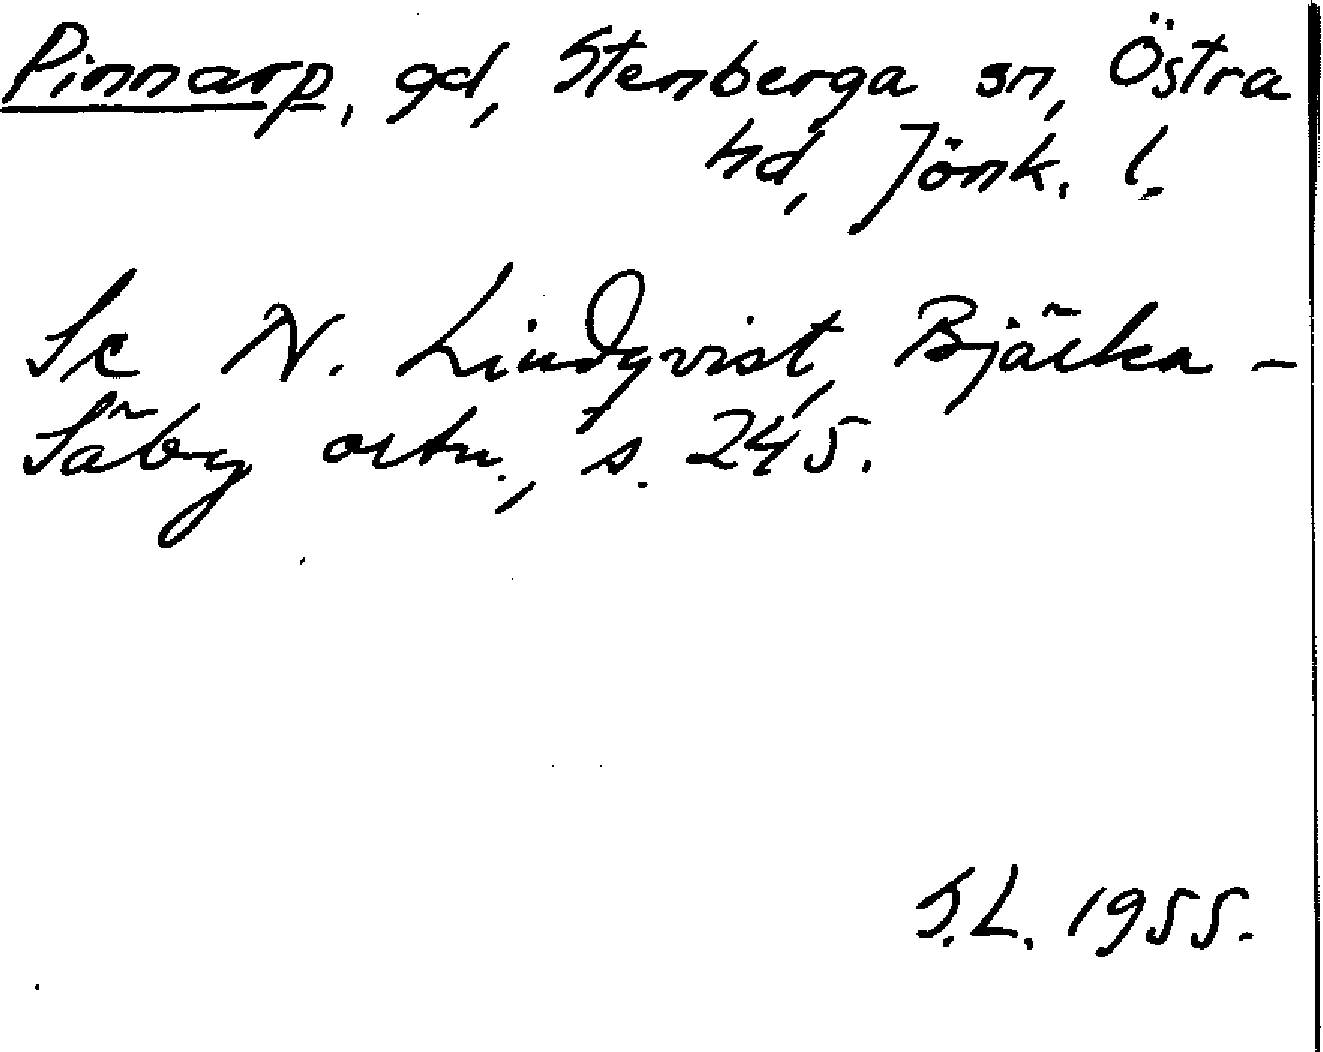 Pinnarp, gd, Stenberga sn, Östra
hd, Jönk. l.
Se N. Lindqvist, Bjärka-
Säby ortn., s. 245.
S.L. 1955.